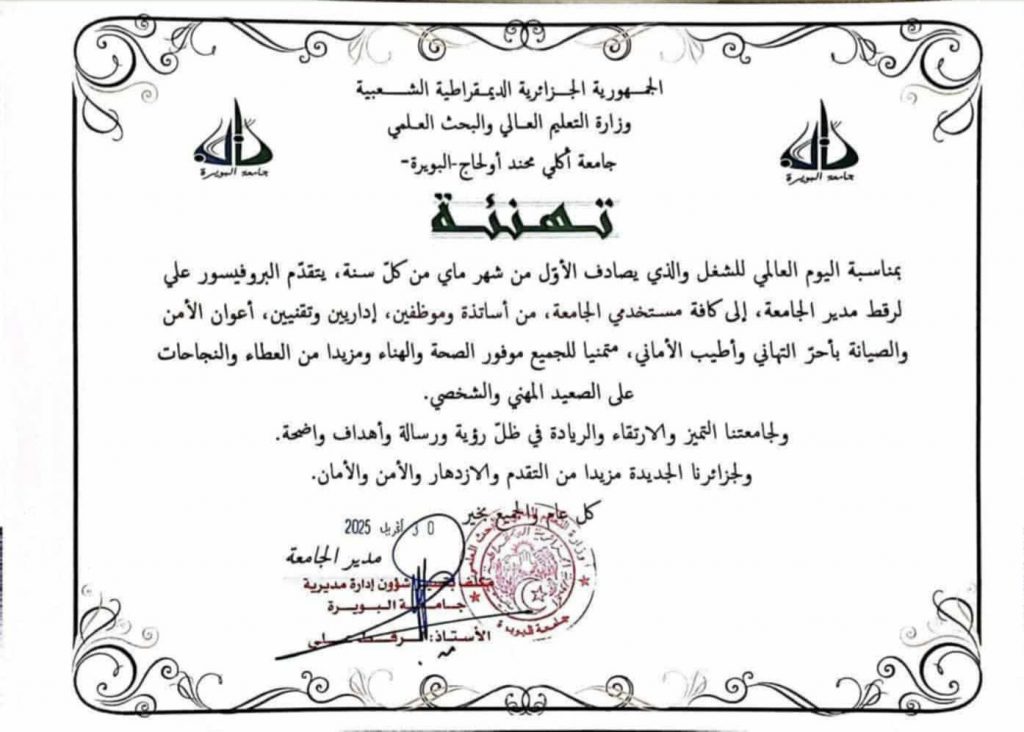 الجمهورية الجزائرية الديمقراطية الشعبية
وزارة التعليم العالي والبحث العلمي
جامعة أكلي محند أولحاج-البويرة-
جامعة البويرة
جامعة البويرة
تهنئة
بمناسبة اليوم العالمي للشغل والذي يصادف الأوّل من شهر ماي من كلّ سنة، يتقدّم البروفيسور علي
لرقط مدير الجامعة، إلى كافة مستخدمي الجامعة، من أساتذة وموظفين، إداريين وتقنيين، أعوان الأمن
والصيانة بأحرّ التهاني وأطيب الأماني، متمنيا للجميع موفور الصحة والهناء ومزيدا من العطاء والنجاحات
على الصعيد المهني والشخصي.
ولجامعتنا التميز والارتقاء والريادة في ظلّ رؤية ورسالة وأهداف واضحة.
ولجزائرنا الجديدة مزيدا من التقدم والازدهار والأمن والأمان.
كل عام والجميع بخير
30 أفريل 2025
مدير الجامعة
مكلف بتسيير شؤون إدارة مديرية
جامعة البويرة
الأستاذ: لرقط علي